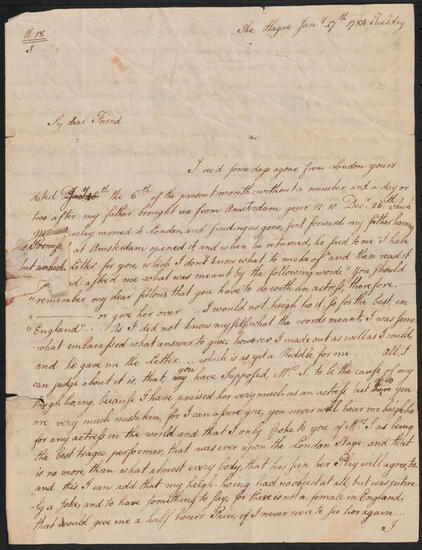 N. 18.
3
The Hague Jan.y 27th 1784 Tuesday
My dear Friend
I rec'd some days agone from London yours
dated the 6th of the present month: without a number, and a day or
two after my father brought me from Amsterdam your N. 10 Dec.r 26th which
carried to London and finding us gone, sent forward, my father having
at Amsterdam opened it and when he returned, he said to me I have
Letter for you which I don't know what to make of and then read it
and asked me what was meant by the following words "You should
"remember my dear fellow that you have to do with an actress, therefore
or give her over ... I would not heigh ho it, so for the best, in
"England". As I did not know myself what the words meant, I was some
what embarassed what answer to give, however I made out as well as I could,
and he gave me the Letter ... which is as yet a Riddle for me all, I
can judge about it is, that, you may have Supposed, Mrs. S. to be the cause of my
heigh ho, ing, because I have praised her very much as an actress but there you
are very much mistaken, for I can assure you, you never will hear me heigh, ho
for any actress in the world and that I only spoke to you of Mrs. S. as being
the best tragic performer, that was ever upon the London Stage and that
is no more than what almost every body, that has seen her Play will agree, to
and this I can add that my heigh hoing had no object at all, but was purely
by a Joke, and to have something to say, for there is not a female in England,
that would give me a half hours Pain, if I never was to see her again ...
I